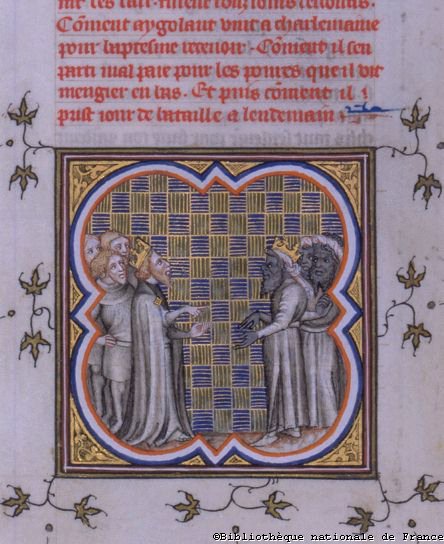 Coment aygolant vint a charlemaine
pour baptesme recevoir. Coment il sen
parti mal paie pour les povres que il vit
mengier en las. Et puis coment il
prist iour de bataille a lendemain
©Bibliothèque nationale de France